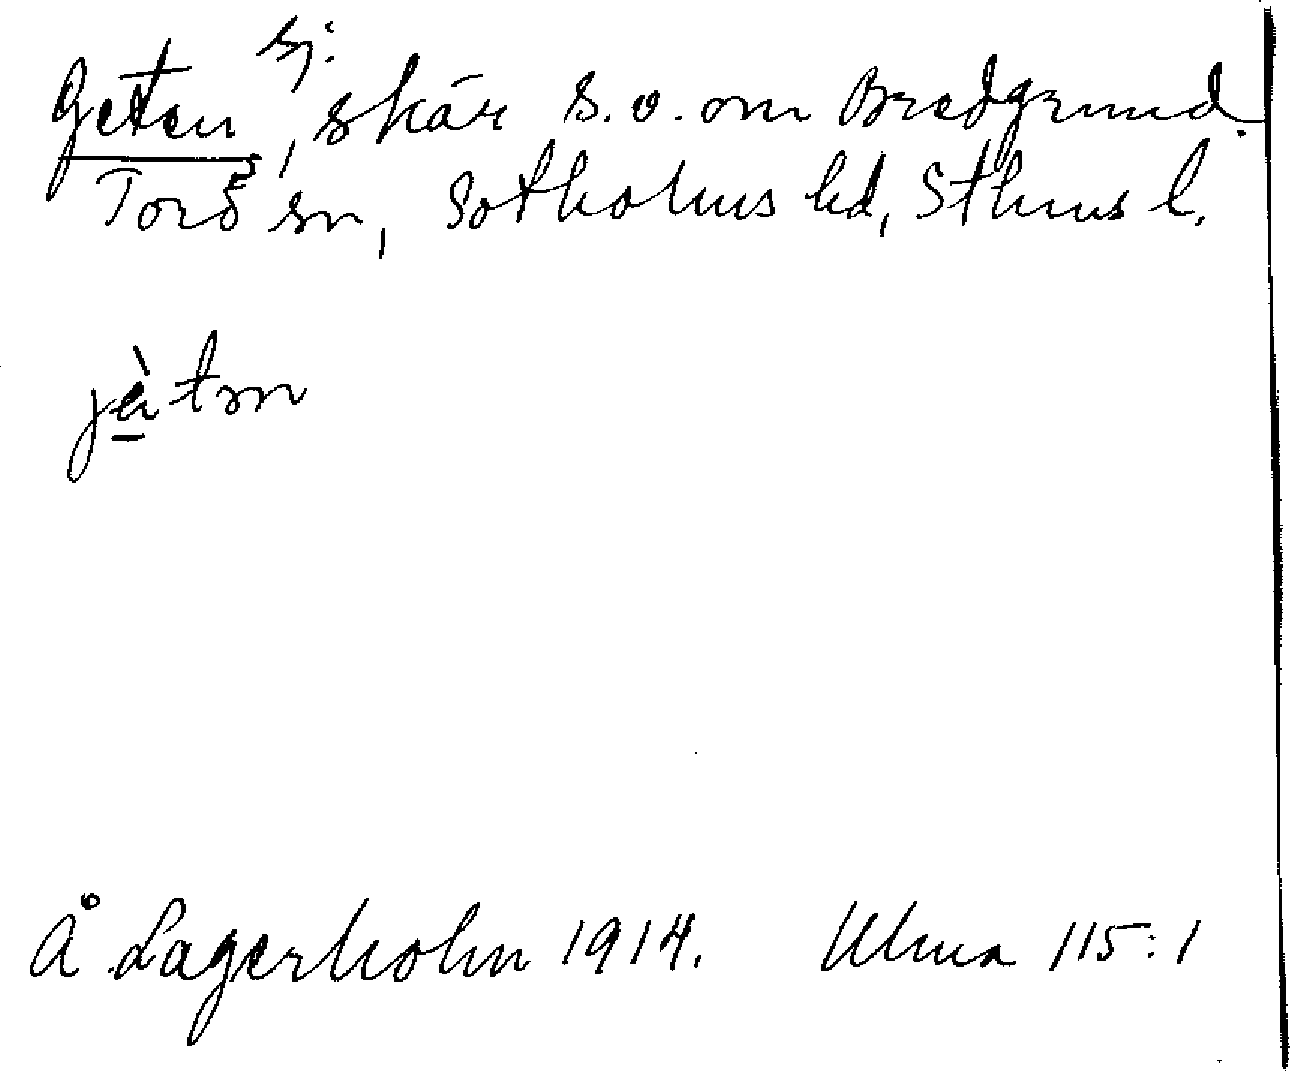 Geten sj:, skär s.v. om Bredgrund.
Torö sn, Sotholms hd, Sthms l.
jètɘn
Å Lagerholm 1914. Ulma 115:1